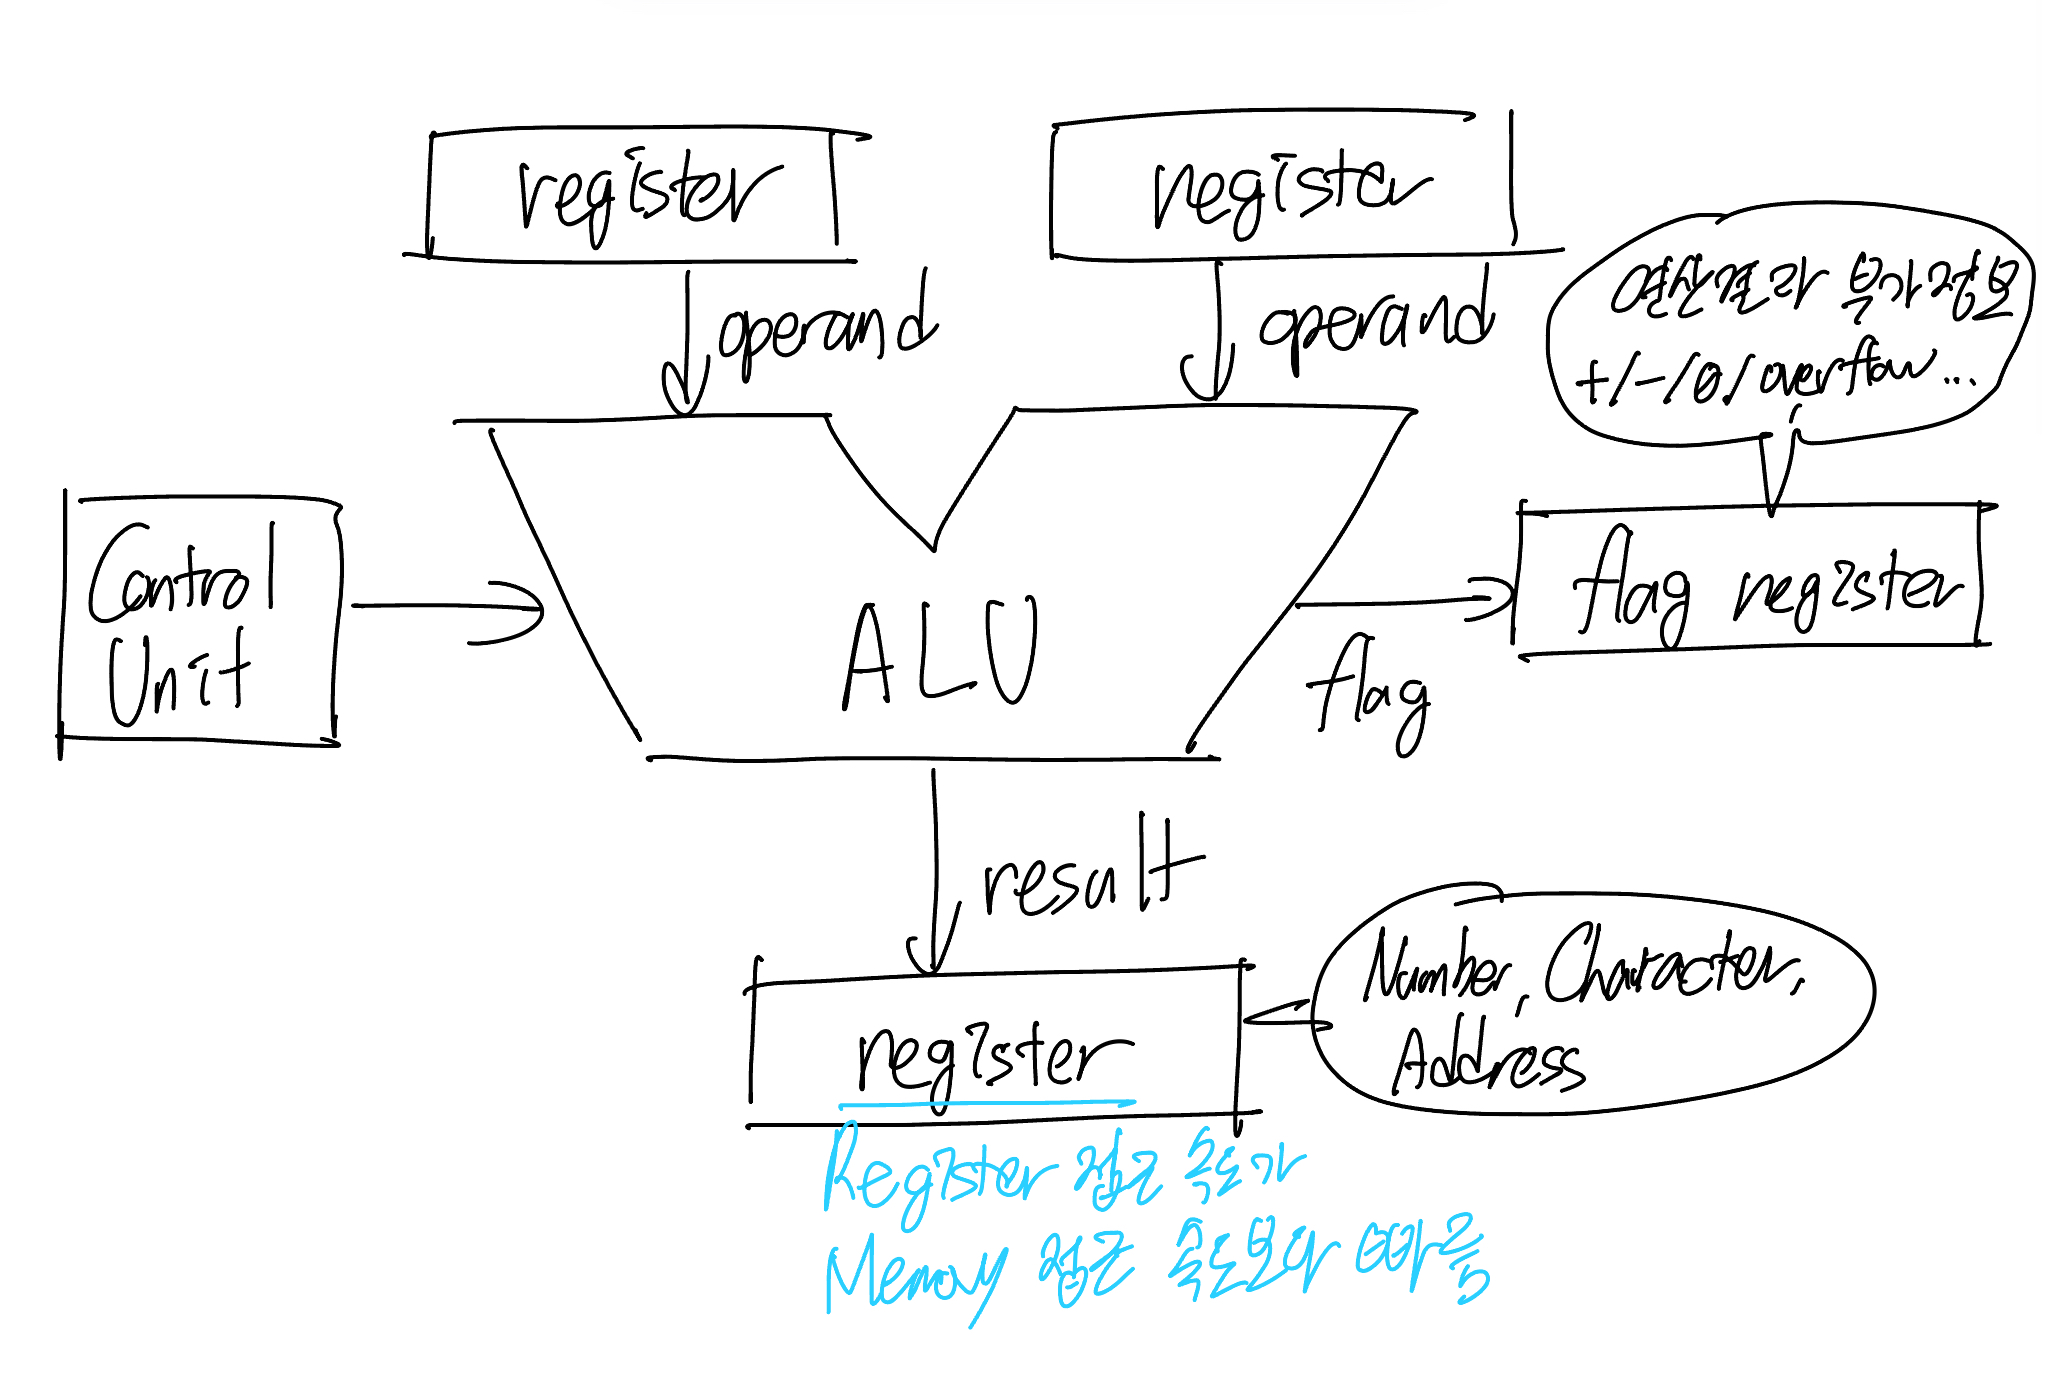 register
register
operand
operand
연산결과 부가정보
+/-/0/overflow...
Control
Unit
ALU
flag register
flag
result
register
Number, Character,
Address
Register 접근 속도가
Memory 접근 속도보다 빠름